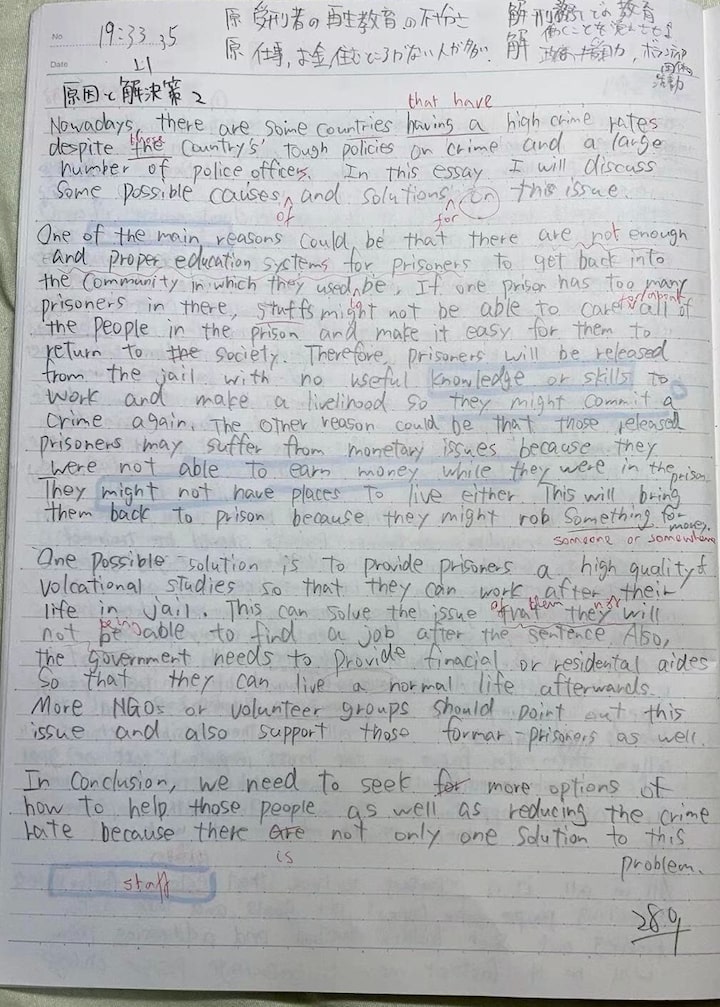 No.
19:33.35
原 受刑者の再生教育の不十分
解 刑務所での教育
働くことを覚えさせる
原 仕事、お金、住むところがない人が多い
解 政府の共助力、ボランティア団体の活動
Date
原因と解決策2
that have
Nowadays, there are some countries having a high crime rates
despite the country's tough policies on crime and a large
number of police officers. In this essay I will discuss
some possible causes and solutions on this issue.
of
for
One of the main reasons could be that there are not enough
and proper education systems for prisoners to get back into
the community in which they used be. If one prison has too many
to
prisoners in there, stuffs might not be able to care all of
the people in the prison and make it easy for them to
return to the society. Therefore, prisoners will be released
from the jail with no useful knowledge or skills to
work and make a livelihood so they might commit a
crime again. The other reason could be that those released
prisoners may suffer from monetary issues because they
were not able to earn money while they were in the prison
They might not have places to live either. This will bring
them back to prison because they might rob something for
money.
someone or somewhere
One possible solution is to provide prisoners a high quality of
volcational studies so that they can work after their
life in jail. This can solve the issue that they will
of them not
not be able to find a job after the sentence. Also,
being
the government needs to provide finacial or residental aides
so that they can live a normal life afterwards.
More NGOs or volunteer groups should point out this
issue and also support those formar-prisoners as well.
In conclusion, we need to seek for more options of
how to help those people as well as reducing the crime
rate because there are not only one solution to this
is
problem.
staff
289